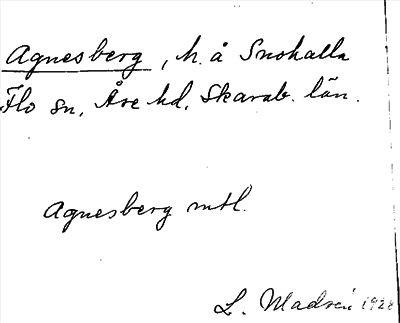 Agnesberg, h. å Snokalla
Flo sn, Åse hd, Skarab. län.
Agnesberg mtl.
L. Madsén 1928